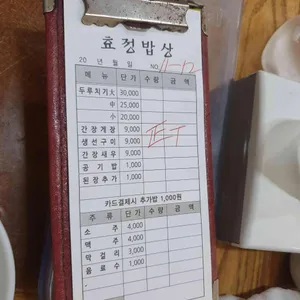 효정밥상
20 년 월 일 NO. 11-12
메뉴 단가 수량 금액
두루치기 大 30,000
中 25,000
小 20,000
간장게장 9,000 正丁
생선구이 9,000
간장새우 9,000
공기밥 1,000
된장추가 1,000
카드결제시 추가밥 1,000원
주류 단가 수량 금액
소주 4,000
맥주 4,000
막걸리 3,000
음료수 1,000